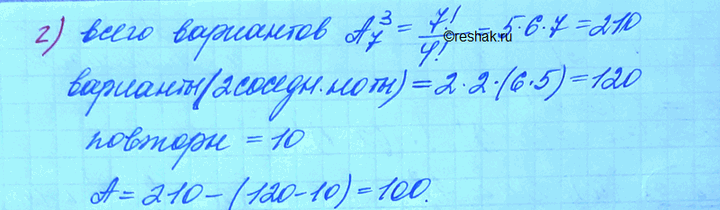 г) всего вариантов A₇³ = 7!/4! = 5·6·7 = 210
©reshak.ru
варианты (2 соседн. ноты) = 2·2·(6·5) = 120
повторн = 10
A = 210 − (120 − 10) = 100.